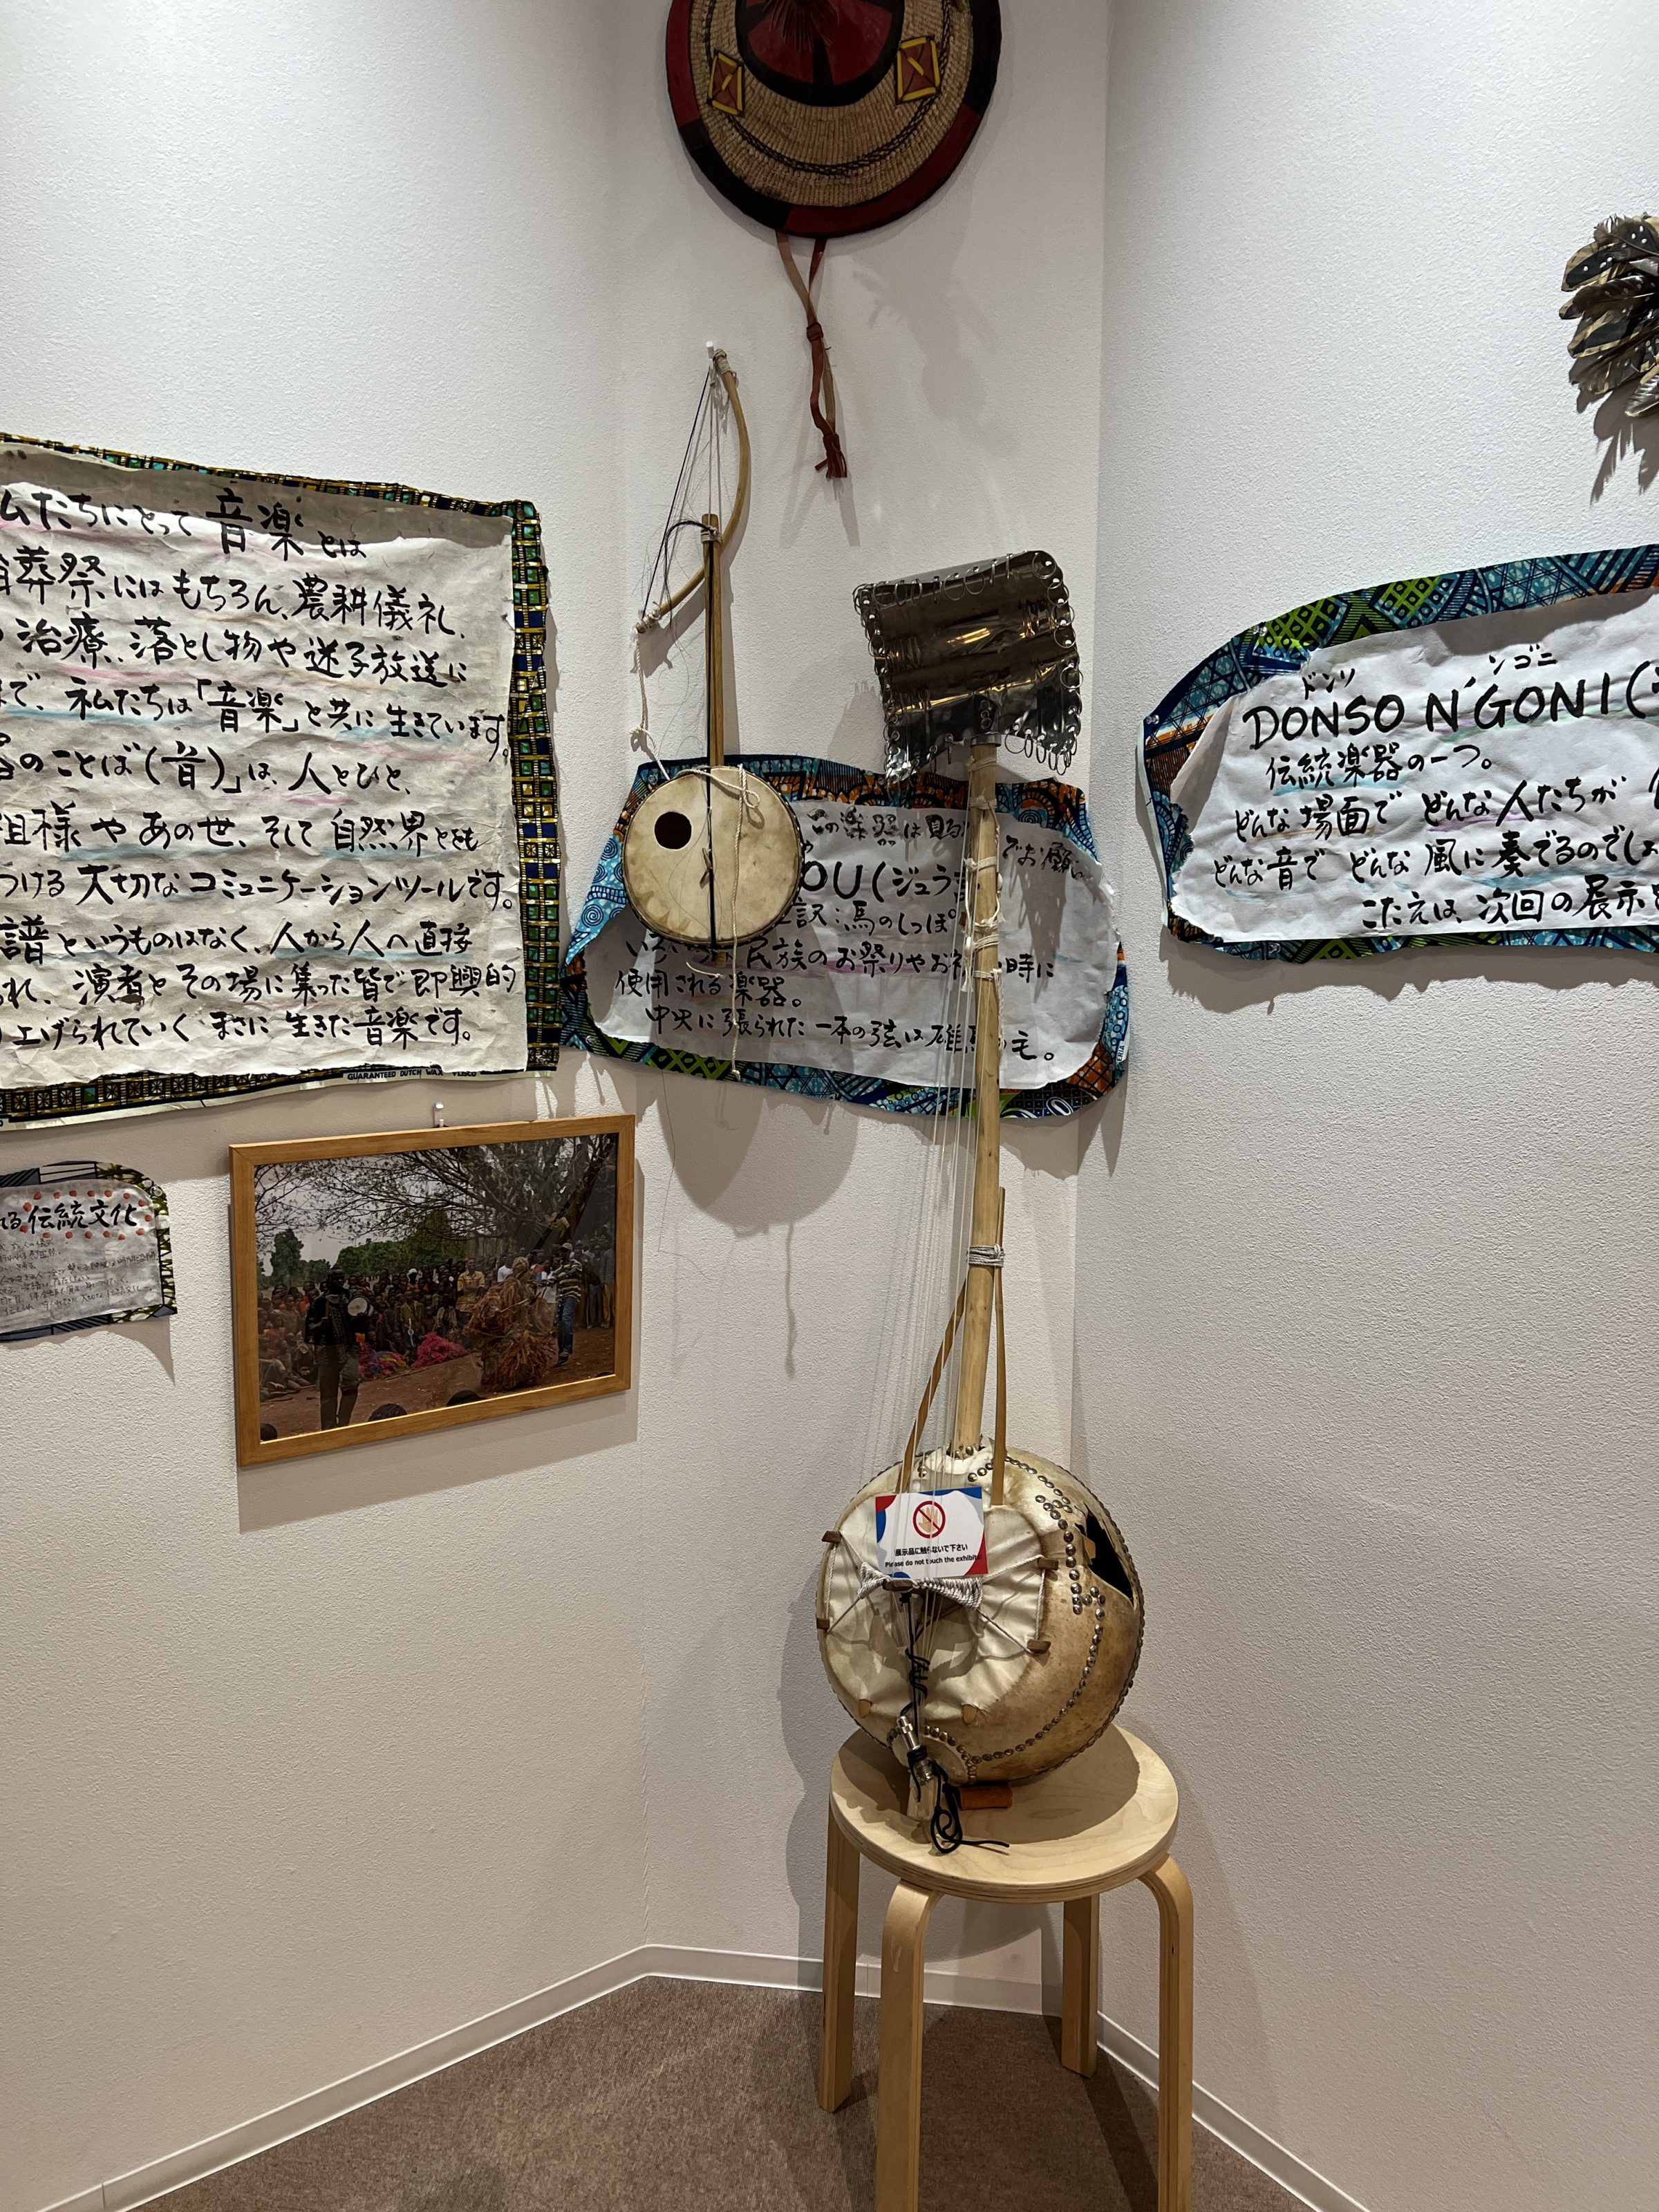 私たちにとって音楽とは
葬祭にはもちろん、農耕儀礼、
治療、落とし物や迷子放送に
まで、私たちは「音楽」と共に生きています。
のことば(音)」は、人とひと、
祖様やあの世、そして自然界とを
つける大切なコミュニケーションツールです。
譜というものはなく、人から人へ直接
れ、演者とその場に集った皆で即興的
上げられていくまさに生きた音楽です。
GUARANTEED DUTCH WAX
る伝統文化
この楽器は見る
でお願い
OU(ジュラ
訳:馬のしっぽ。
民族のお祭りやお祝 時に
使用される楽器。
中央に張られた一本の弦は 毛。
ドンソ ンゴニ
DONSO N'GONI(
伝統楽器の一つ。
どんな場面でどんな人たちが
どんな音でどんな風に奏でるのでしょ
こたえは、次回の展示
展示品に触らないで下さい
Please do not touch the exhibits